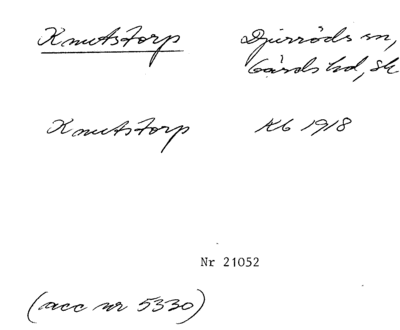 Knutstorp Djurröds sn,
Gärds hd, Sk
Knutstorp Kb 1918
Nr 21052
(acc nr 5330)